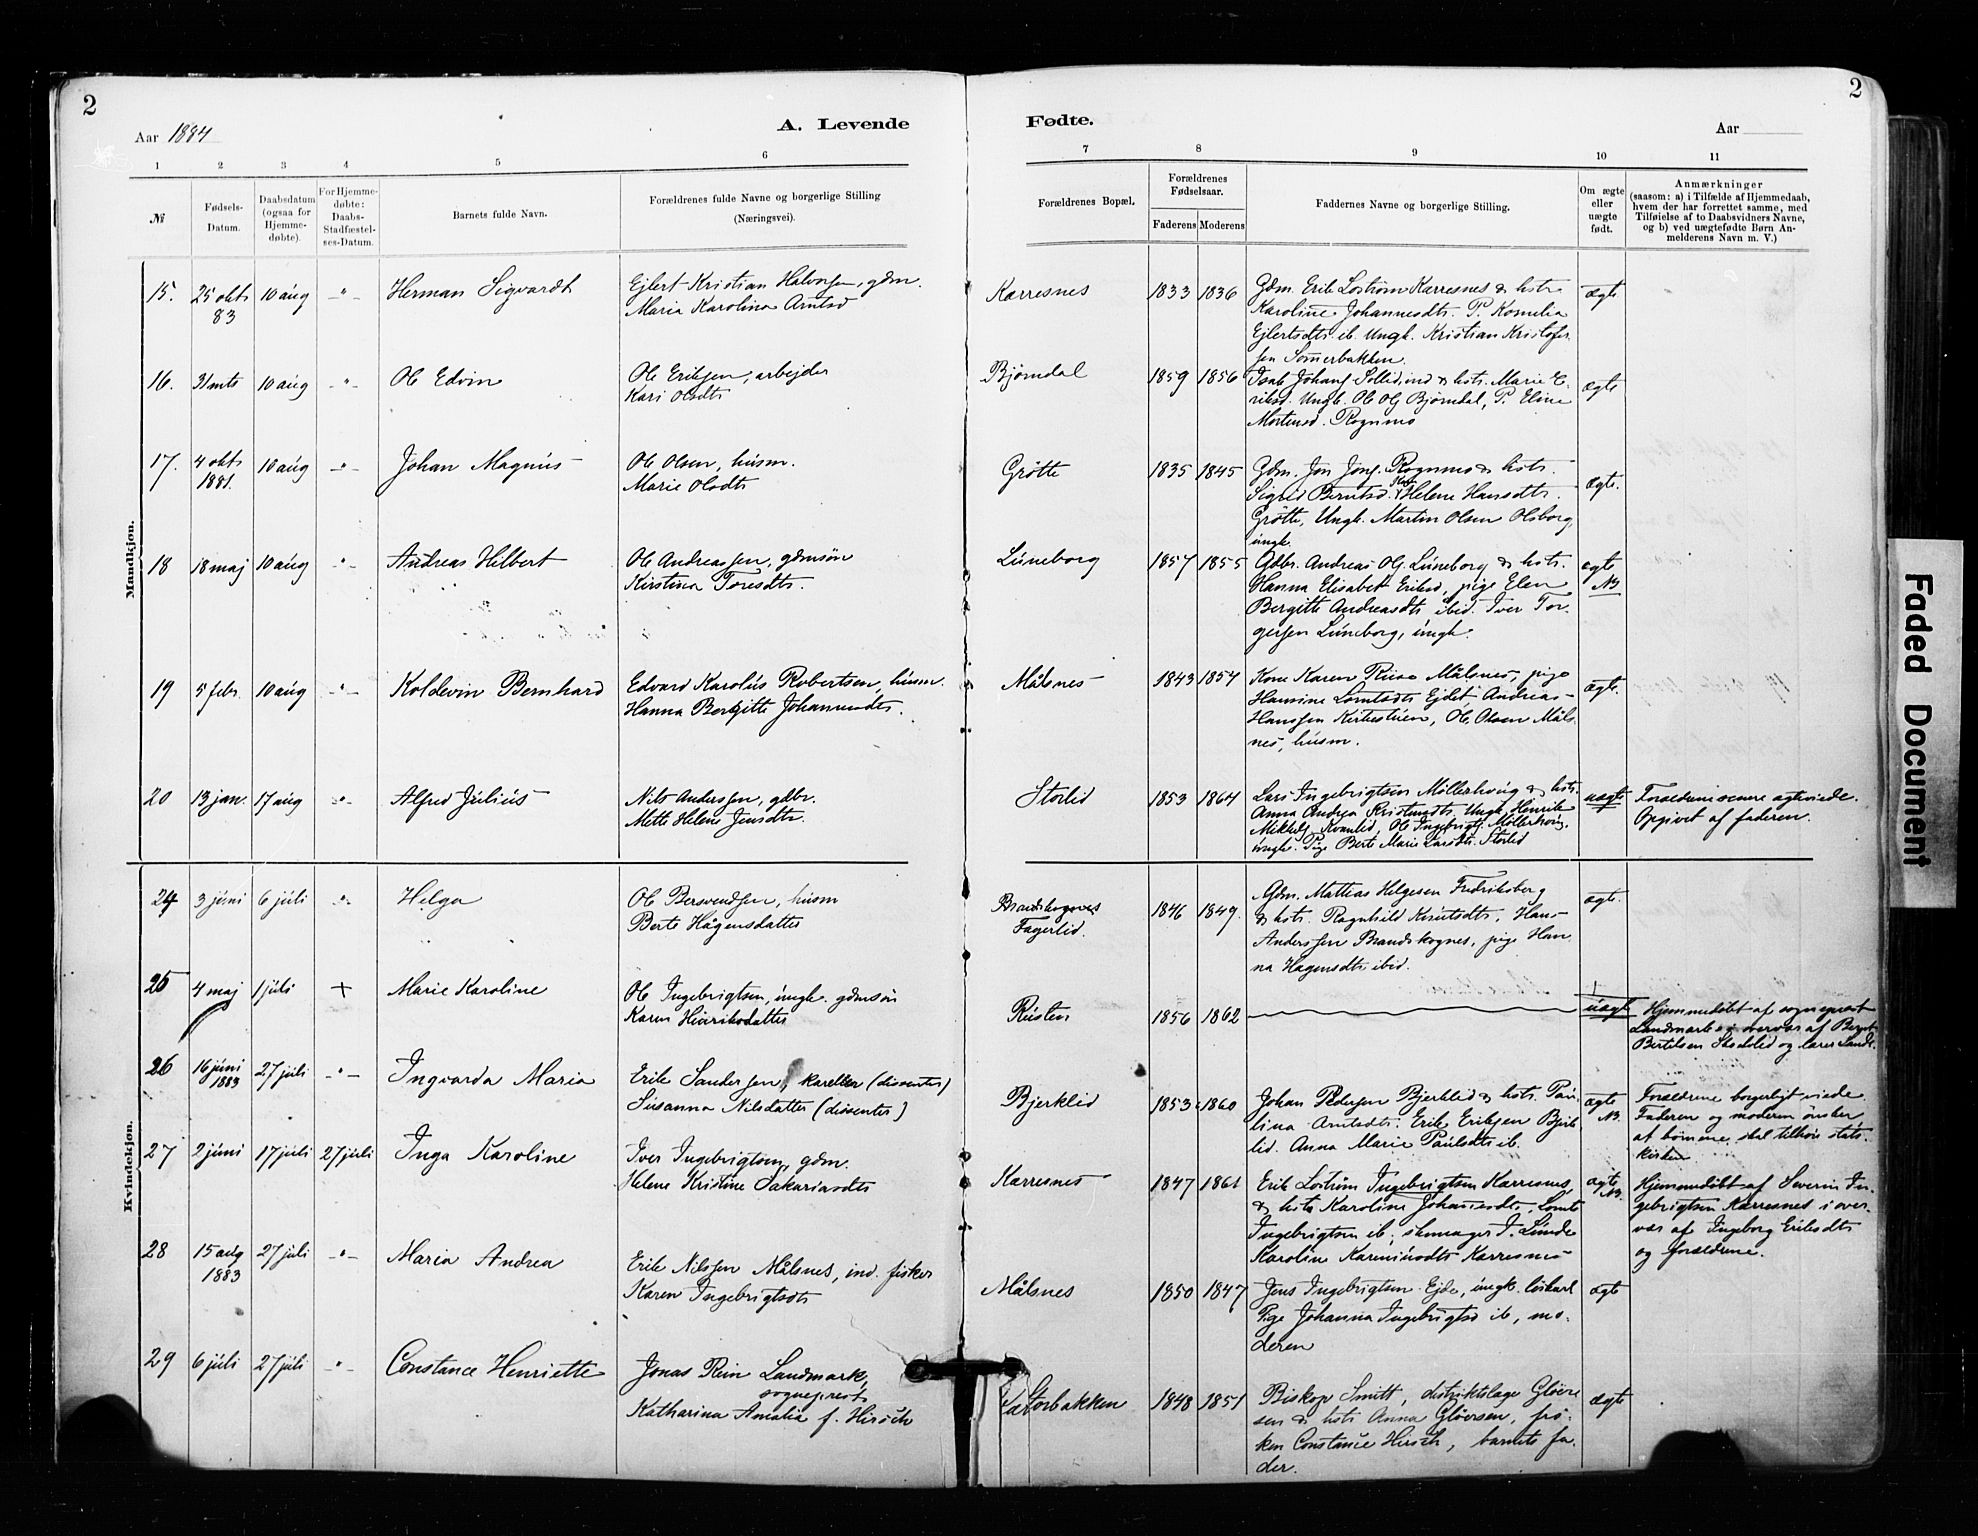 2
2
Aar 1884
A. Levende
Fødte.
Aar
1 2 3 4 5 6
7 8 9 10 11
№
Fødsels-
Datum.
Daabsdatum
(ogsaa for
Hjemme-
døbte).
For Hjemme-
døbte:
Daabs-
Stadfæstel-
ses-Datum.
Barnets fulde Navn.
Forældrenes fulde Navne og borgerlige Stilling
(Næringsvei).
Forældrenes Bopæl.
Forældrenes
Fødselsaar.
Faderens Moderens
Faddernes Navne og borgerlige Stilling.
Om ægte
eller
uægte
født.
Anmærkninger
(saasom: a) i Tilfælde af Hjemmedaab,
hvem der har forrettet samme, med
Tilføielse af to Daabsvidners Navne,
og b) ved uægtefødte Børn An-
melderens Navn m. V.)
Mandkjøn.
15. 25 okt 83 10 aug -"- Herman Sigvardt
Ejlert Kristian Halvorsen, gdm.
Maria Karolina Arntsd
Karresnes 1833 1836
Gdm. Erik Loström Karresnes & hstr
Karoline Johannesdtr. P. Kornelia
Ejlertsdtr. ib. Ungk. Kristian Kristofer-
sen Sommerbakken.
ægte
16. 31 mts 10 aug -"- Ole Edvin
Ole Eriksen, arbejder
Kari Olsdtr
Bjørndal 1859 1856
Isak Johans. Sollid, ind & hstr. Marie E-
riksd. Ungk. Ole Ols Bjørndal, P. Eline
Mortensd. Rognmo
ægte
17. 4 okt 1881. 10 aug -"- Johan Magnus
Ole Olsen, husm.
Marie Olsdtr
Grötte 1835 1845
Gdm. Jon Jons. Rognmo & hstr.
Sigrid Berntsd. Helene Hansdtr.
Grötte, Ungk. Martin Olsen Olsborg,
ungk.
ægte.
18 18 maj 10 aug -"- Andreas Hilbert
Ole Andreassen, gdmsøn
Kirstina Toresdtr.
Luneborg 1857 1855
Gdbr. Andreas Ols. Luneborg & hstr.
Hanna Elisabet Eriksd, pige Elen
Bergitte Andreasdtr ibid. Iver Tor-
gersen Luneborg, ungk.
ægte
NB.
19 5 febr. 10 aug -"- Koldevin Bernhard
Edvard Karolus Robertsen, husm.
Hanna Bergitte Johannesdtr.
Målsnes 1843 1857
Kone Karen Målsnes, pige
Hansine Lorntsdtr Ejdet, Andreas
Hanssen Kirkestuen, Ole Olsen Måls-
nes, husm.
ægte.
20 13 jan. 17 aug -"- Alfred Julius
Nils Anderssen, gdbr.
Mette Helene Jensdtr.
Storlid 1853 1864
Lars Ingebrigtsen Möllerhaug & hstr.
Anna Andrea Kristensdtr. Ungk. Henrik
Mikkels. Kvanlid, Ole Ingebrigts. Möllerhaug,
ungk. Pige Berte Marie Larsdtr. Storlid
uægte
Forældrene senere ægteviede.
Opgivet af faderen.
Kvindekjøn.
24 3 juni 6 juli -"- Helga
Ole Bersvendsen, husm
Berte Hågensdatter
Brandskognes
Fagerlid. 1846 1849.
Gdm. Mattias Helgesen Fredriksberg
& hstr. Ragnhild Knutsdtr. Hans
Anderssen Brandskognes, pige Han-
na Hagensdtr ibid.
ægte.
25 4 maj 1 juli + Marie Karoline
Ole Ingebrigtsen, ungk. gdmsøn
Karen Henriksdatter
Rusten 1856 1862
uægte
Hjemmedöbt af sogneprest
Landmark i overvær af Bernt
Bertelsen Storlid og lærer Sand.
26 16 juni 1883 27 juli -"- Ingvarda Maria
Erik Sandersen, kareller (dissenter)
Susanna Nilsdatter (dissenter)
Bjerklid 1853 1860
Johan Pedersen Bjerklid & hstr. Pau-
lina Arntsdtr. Erik Eriksen Bjerk-
lid. Anna Marie Paulsdtr ib.
ægte
NB.
Forældrene borgerligt viede.
Faderen og moderen önsker
at børnene skal tilhöre stats-
kirken.
27 2 juni 17 juli 27 juli Inga Karoline
Iver Ingebrigtsen, gdm.
Helene Kristine Sakariasdtr
Karresnes 1847 1861
Erik Loström Ingebrigtsen Karresnes
& hstr Karoline Johannesdtr, Lornts
Ingebrigtsen ib, skomager J. Lunde
Karoline Kareniusdtr Karresnes
ægte
NB.
Hjemmedöbt af Severin In-
gebrigtsen Karresnes i over-
vær af Ingeborg Eriksdtr
og forældrene.
28 15 aug 1883 27 juli -"- Maria Andrea
Erik Nilssen Målsnes, ind. fisker
Karen Ingebrigtsdtr
Målsnes 1850 1847
Jens Ingebrigtsen Ejde, ungk. löskarl
Pige Johanna Ingebrigtsd ib, mo-
deren
ægte
29 6 juli 27 juli -"- Constance Henriette
Jonas Rein Landmark,
sogneprest
Katharina Amalia f. Hirsch
Storbakken 1848 1851
Biskop Smitt, distriktslæge Gløer-
sen & hstr Anna Gløersen, frø-
ken Constance Hirsch, barnets fa-
der.
ægte
Faded Document